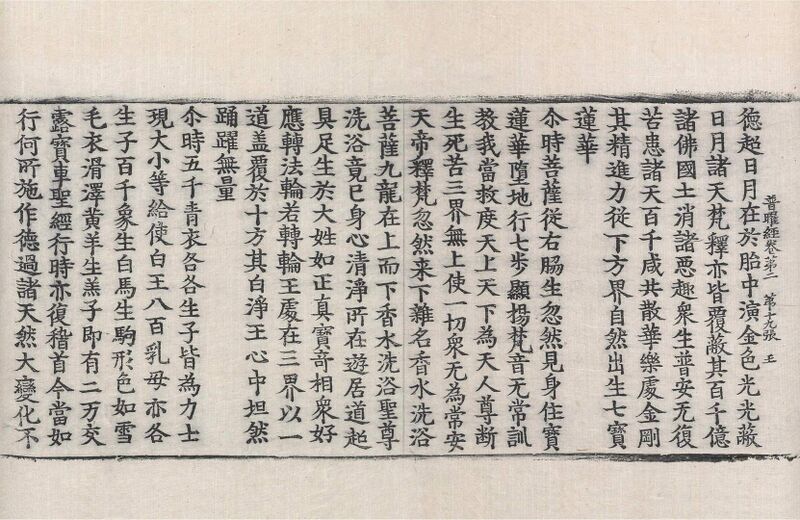 德超日月在於胎中演金色光光蔽
普曜經卷第二　第十九張　王
日月諸天梵釋亦皆覆蔽其百千億
諸佛國土消諸惡趣衆生普安无復
苦患諸天百千咸共散華樂處金剛
其精進力從下方界自然出生七寶
蓮華
尒時菩薩從右脇生忽然見身住寶
蓮華墮地行七步顯揚梵音无常訓
教我當救度天上天下為天人尊斷
生死苦三界無上使一切衆无為常安
天帝釋梵忽然来下雜名香水洗浴
菩薩九龍在上而下香水洗浴聖尊
洗浴竟已身心清淨所在遊居道超
具足生於大姓如正真寶奇相衆好
應轉法輪若轉輪王處在三界以一
道盖覆於十方其白淨王心中坦然
踊躍無量
尒時五千青衣各各生子皆為力士
現大小等給使白王八百乳母亦各
生子百千象生白馬生駒形色如雪
毛衣滑澤黃羊生羔子即有二万交
露寶車聖經行時亦復稽首今當如
行何所施作德過諸天然大變化不